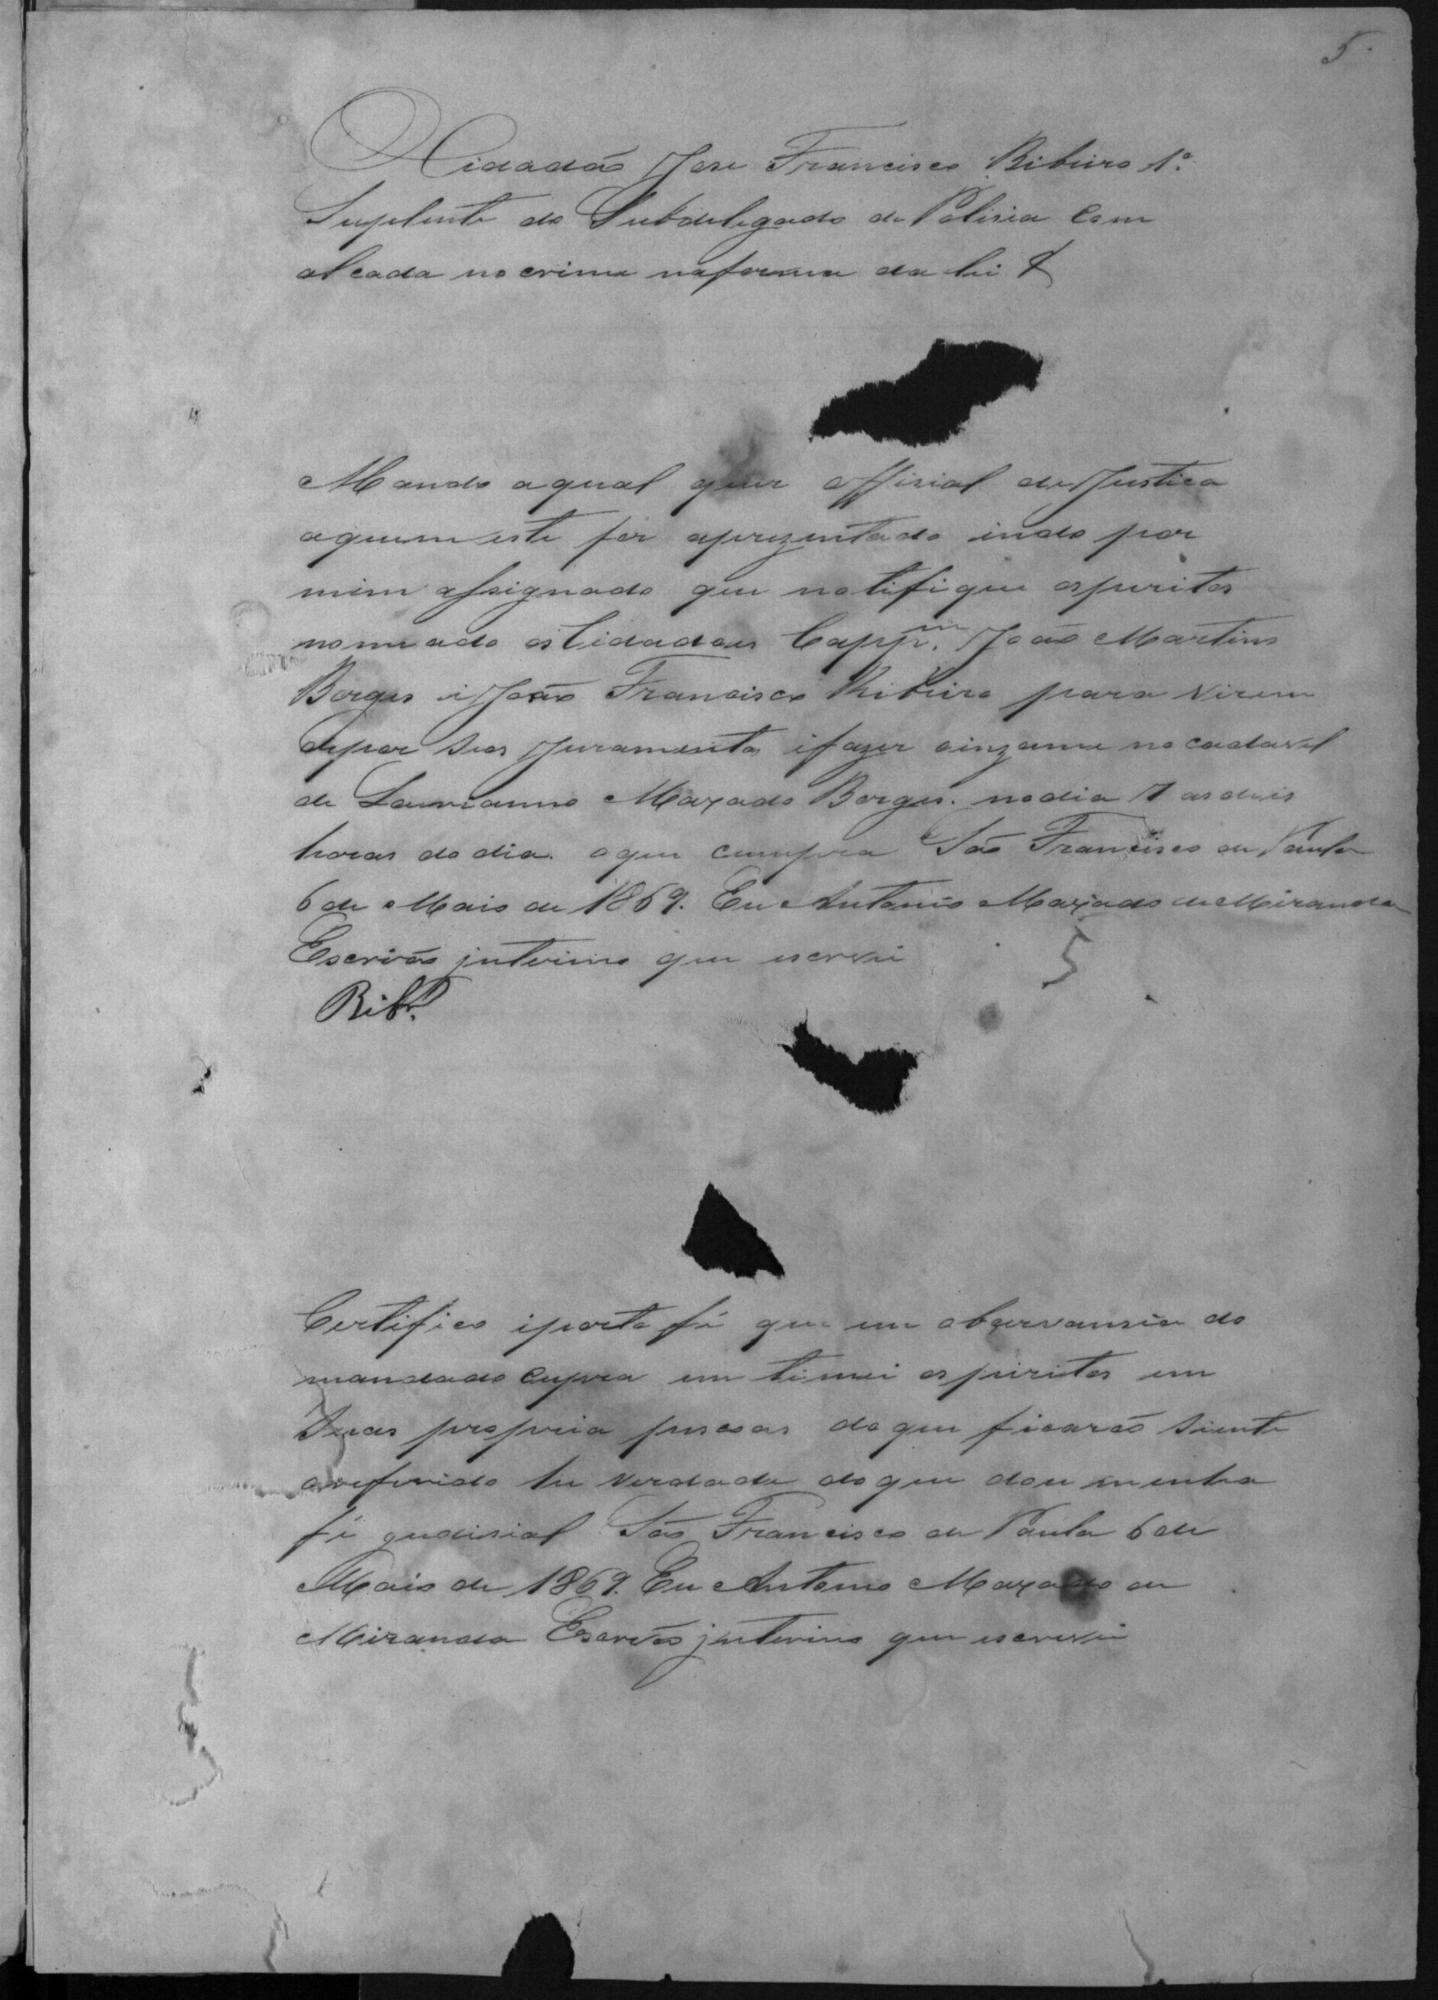 5
O Cidadão Jose Francisco Ribeiro 1º
Suplente do Subdelegado de Polisia Com
alcada no crime na forma da lei &
Mando aqual quer Offisial de Justica
aquem este for aprezentado indo por
mim assignado que notifique os peritos
nomeado os Cidadous Capp.m João Martins
Borges i João Francisco Ribeiro para virem
depor seos Juramentos i fazer o inzame no cadavel
de Laurianno Maxado Borges. no dia 7 as dois
horas do dia. o que cumpra São Francisco de Paula
6 de Maio de 1869. Eu Antonio Maxado de Miranda
Escrivão interino que escrevi
5
Ribr.º
Certifico i porto fé que em observansia do
mandado cupra em timei os piritos em
suas propria pescoas do que ficarão siente
o referido he verdade do que dou minha
fé gudisial São Francisco de Paula 6 de
Maio de 1869. Eu Antonio Maxado de
Miranda Escrivão interino que escrevi